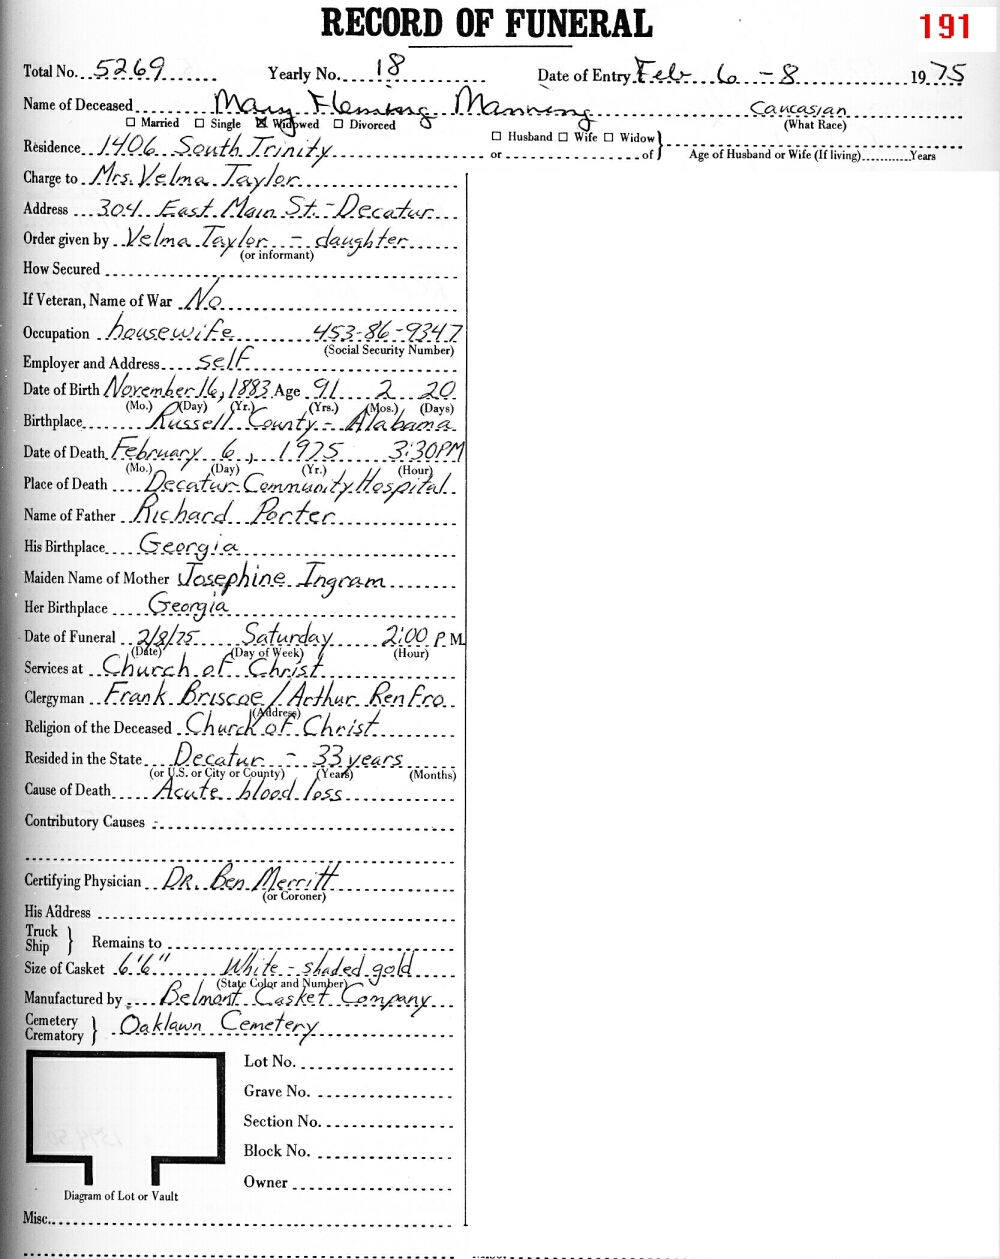 RECORD OF FUNERAL 191
Total No. 5269 Yearly No. 18 Date of Entry Feb 6 - 8 1975
Name of Deceased Mary Fleming Manning Caucasian
☐ Married ☐ Single ☒ Widowed ☐ Divorced (What Race)
☐ Husband ☐ Wife ☐ Widow }
Residence 1406 South Trinity or of Age of Husband or Wife (If living) Years
Charge to Mrs. Velma Taylor
Address 304 East Main St. - Decatur
Order given by Velma Taylor - daughter
(or informant)
How Secured
If Veteran, Name of War No
Occupation housewife 453-86-9347
(Social Security Number)
Employer and Address self
Date of Birth November 16, 1883 Age 91 2 20
(Mo.) (Day) (Yr.) (Yrs.) (Mos.) (Days)
Birthplace Russell County - Alabama
Date of Death February 6, 1975 3:30PM
(Mo.) (Day) (Yr.) (Hour)
Place of Death Decatur Community Hospital
Name of Father Richard Porter
His Birthplace Georgia
Maiden Name of Mother Josephine Ingram
Her Birthplace Georgia
Date of Funeral 2/8/75 Saturday 2:00 P.M.
(Date) (Day of Week) (Hour)
Services at Church of Christ
Clergyman Frank Briscoe / Arthur Renfro
(Address)
Religion of the Deceased Church of Christ
Resided in the State Decatur - 33 years
(or U.S. or City or County) (Years) (Months)
Cause of Death Acute blood loss
Contributory Causes
Certifying Physician DR. Ben Merritt
(or Coroner)
His Address
Truck
Ship } Remains to
Size of Casket 6'6" White - shaded gold
(State Color and Number)
Manufactured by Belmont Casket Company
Cemetery
Crematory } Oaklawn Cemetery
Lot No.
Grave No.
Section No.
Block No.
Owner
Diagram of Lot or Vault
Misc.